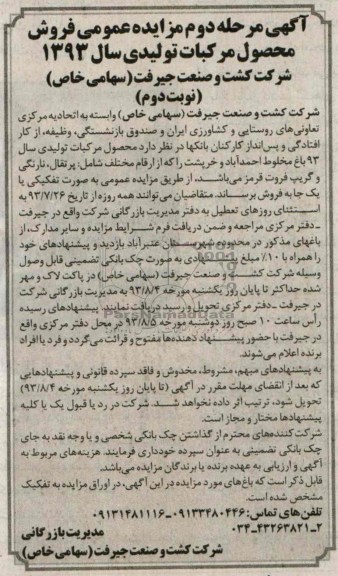 آگهی مرحله دوم مزایده عمومی فروش
محصول مرکبات تولیدی سال ۱۳۹۳
شرکت کشت و صنعت جیرفت (سهامی خاص)
(نوبت دوم)
شرکت کشت و صنعت جیرفت (سهامی خاص) وابسته به اتحادیه مرکزی
تعاونی‌های روستایی و کشاورزی ایران و صندوق بازنشستگی، وظیفه، از کار
افتادگی و پس‌انداز کارکنان بانکها در نظر دارد محصول مرکبات تولیدی سال
۹۳ باغ مخلوط احمدآباد و خرپشت را که از ارقام مختلف شامل: پرتقال، نارنگی
و گریپ فروت قرمز می‌باشد، از طریق مزایده عمومی به صورت تفکیکی یا
یک جا به فروش برساند. متقاضیان می‌توانند همه روزه از تاریخ ۹۳/۷/۲۶ به
استثنای روزهای تعطیل به دفتر مدیریت بازرگانی شرکت واقع در جیرفت
ـ دفتر مرکزی مراجعه و ضمن دریافت فرم شرایط مزایده و سایر مدارک، از
باغهای مذکور در محدوده شهرستان عنبرآباد بازدید و پیشنهادهای خود
را همراه با ۱۰٪ مبلغ پیشنهادی به صورت چک بانکی تضمینی قابل وصول
وسیله شرکت کشت و صنعت جیرفت (سهامی خاص) در پاکت لاک و مهر
شده حداکثر تا پایان روز یکشنبه مورخه ۹۳/۸/۴ به مدیریت بازرگانی شرکت
در جیرفت ـ دفتر مرکزی تحویل و رسید دریافت نمایند. پیشنهادهای رسیده
رأس ساعت ۱۰ صبح روز دوشنبه مورخه ۹۳/۸/۵ در محل دفتر مرکزی واقع
در جیرفت با حضور پیشنهاد دهنده‌ها مفتوح و قرائت می‌گردد و فرد یا افراد
برنده اعلام می‌شوند.
به پیشنهادهای مبهم، مشروط، مخدوش و فاقد سپرده قانونی و پیشنهادهایی
که بعد از انقضای مهلت مقرر در آگهی (تا پایان روز یکشنبه مورخه ۹۳/۸/۴)
تحویل شود، ترتیب اثر داده نخواهد شد. شرکت در رد یا قبول یک یا کلیه
پیشنهادها مختار و مجاز است.
شرکت کننده‌های محترم از گذاشتن چک بانکی شخصی و یا وجه نقد به جای
چک بانکی تضمینی به عنوان سپرده خودداری فرمایند. هزینه‌های مربوط به
آگهی و ارزیابی به عهده برنده یا برندگان مزایده می‌باشد.
قابل ذکر است که باغ‌های مورد مزایده در این آگهی، در اوراق مزایده به تفکیک
مشخص شده است.
تلفن‌های تماس: ۰۹۱۳۳۴۸۰۴۴۶ـ۰۹۱۳۱۴۸۱۱۱۶
۰۳۴-۴۳۲۶۳۸۲۱-۲
مدیریت بازرگانی
شرکت کشت و صنعت جیرفت (سهامی خاص)
ParsNamadData